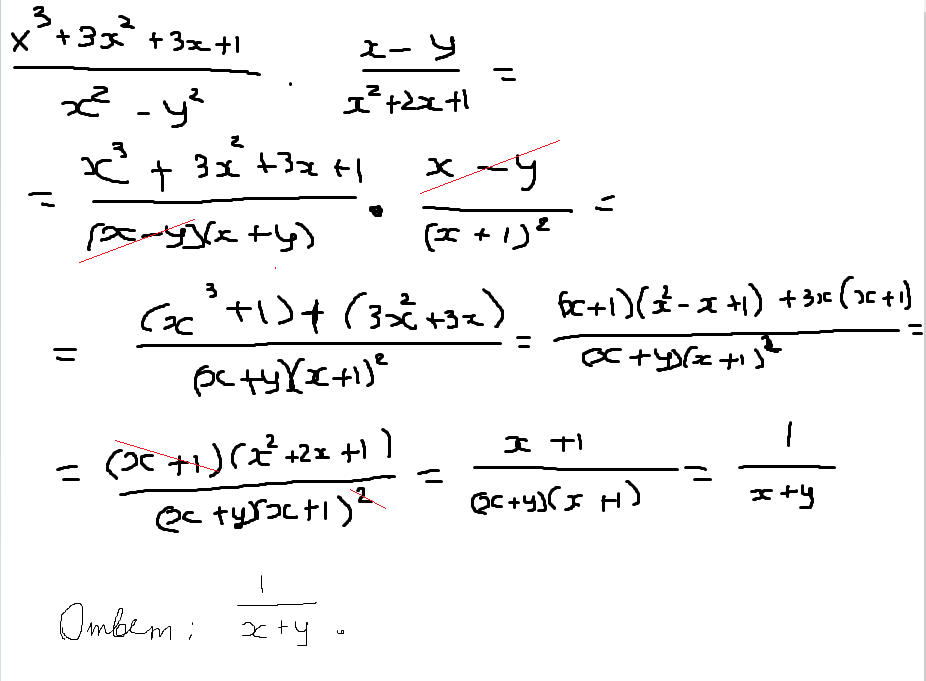 (x³+3x²+3x+1)/(x²-y²) · (x-y)/(x²+2x+1) =
= (x³+3x²+3x+1)/((x-y)(x+y)) · (x-y)/((x+1)²) =
= ((x³+1)+(3x²+3x))/((x+y)(x+1)²) = ((x+1)(x²-x+1)+3x(x+1))/((x+y)(x+1)²) =
= ((x+1)(x²+2x+1))/((x+y)(x+1)²) = (x+1)/((x+y)(x+1)) = 1/(x+y)
Ответ: 1/(x+y).